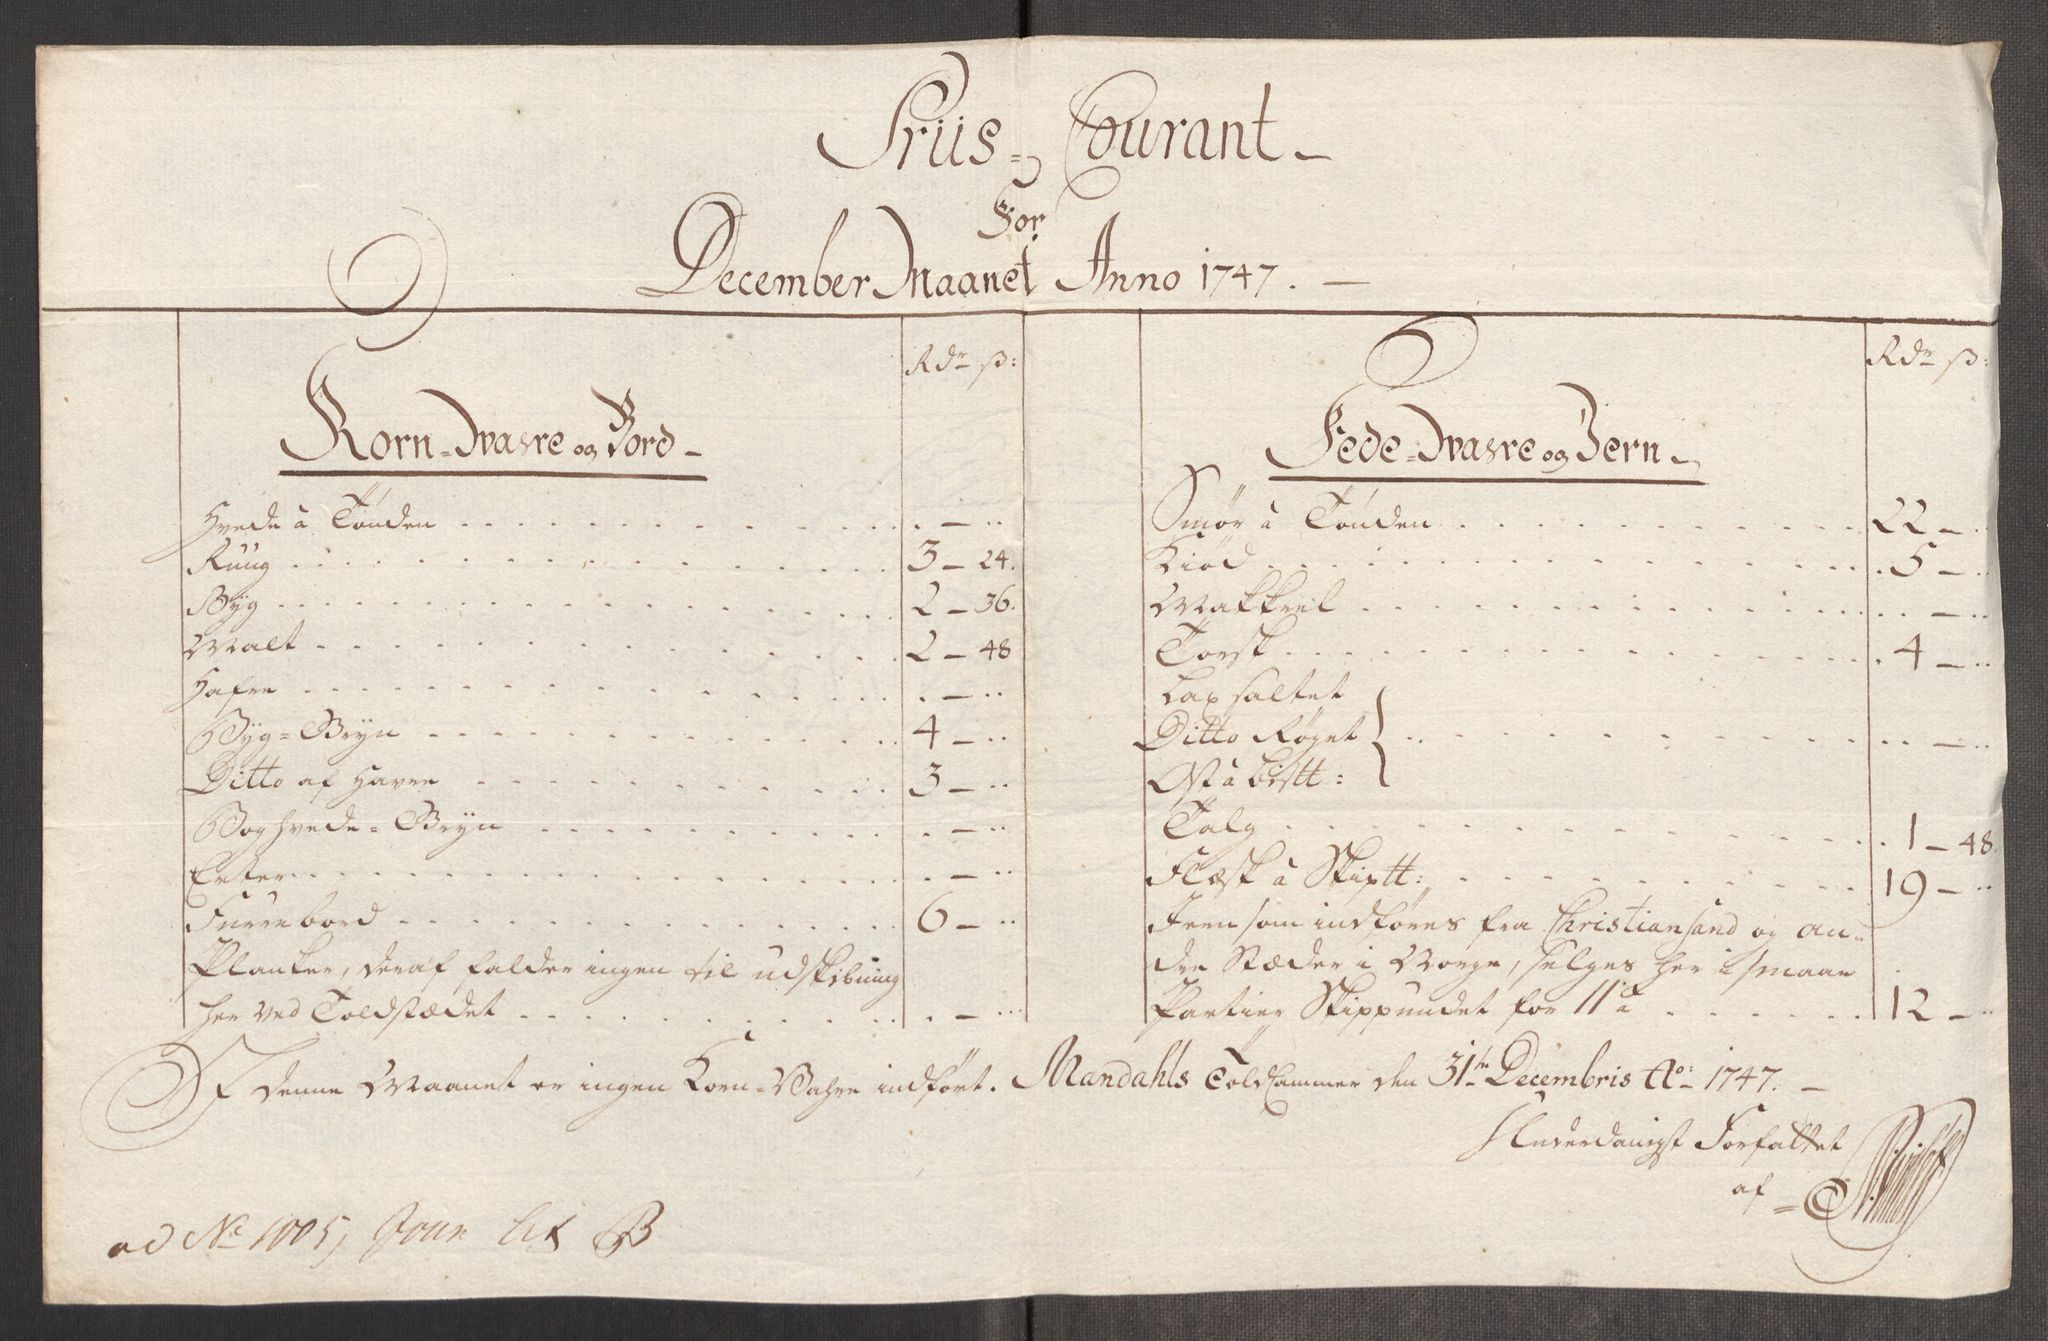 Priis=Courant
For
December Maanet Anno 1747.
Rdr ß:
Korn=Waare og Bord
Hvede a Tønden . — ..
Ruug 3 — 24.
Byg 2 — 36.
Malt 2 — 48
Hafre . — ..
Byg=Gryn 4 — ..
Ditto af Havre 3 — ..
Boghvede=Gryn . — ..
Erter . — ..
Furrebord 6 — ..
Planker, deraf falder ingen til udskibning
her ved Toldstædet . — ..
Rdr ß:
Fede=Waare og Jern
Smør a Tønden 22 — .
Kiød 5 — ..
Makkrel . — ..
Torsk 4 — ..
Lax saltet
Ditto Røget . — ..
Ost a Listt:
Talg 1 — 48.
Flæsk a Skiptt: 19 — ..
Jern som indføres fra Christiansand og an=
dre Stæder i Norge, selges her i smaae
Partier Skippundet for 11 a 12 — ..
I denne Maanet er ingen Korn=Vahre indført. Mandahls ToldCammer den 31te Decembris Ao: 1747.
Underdanigst Forfattet
af =
ad No 1005, Jour Lit B